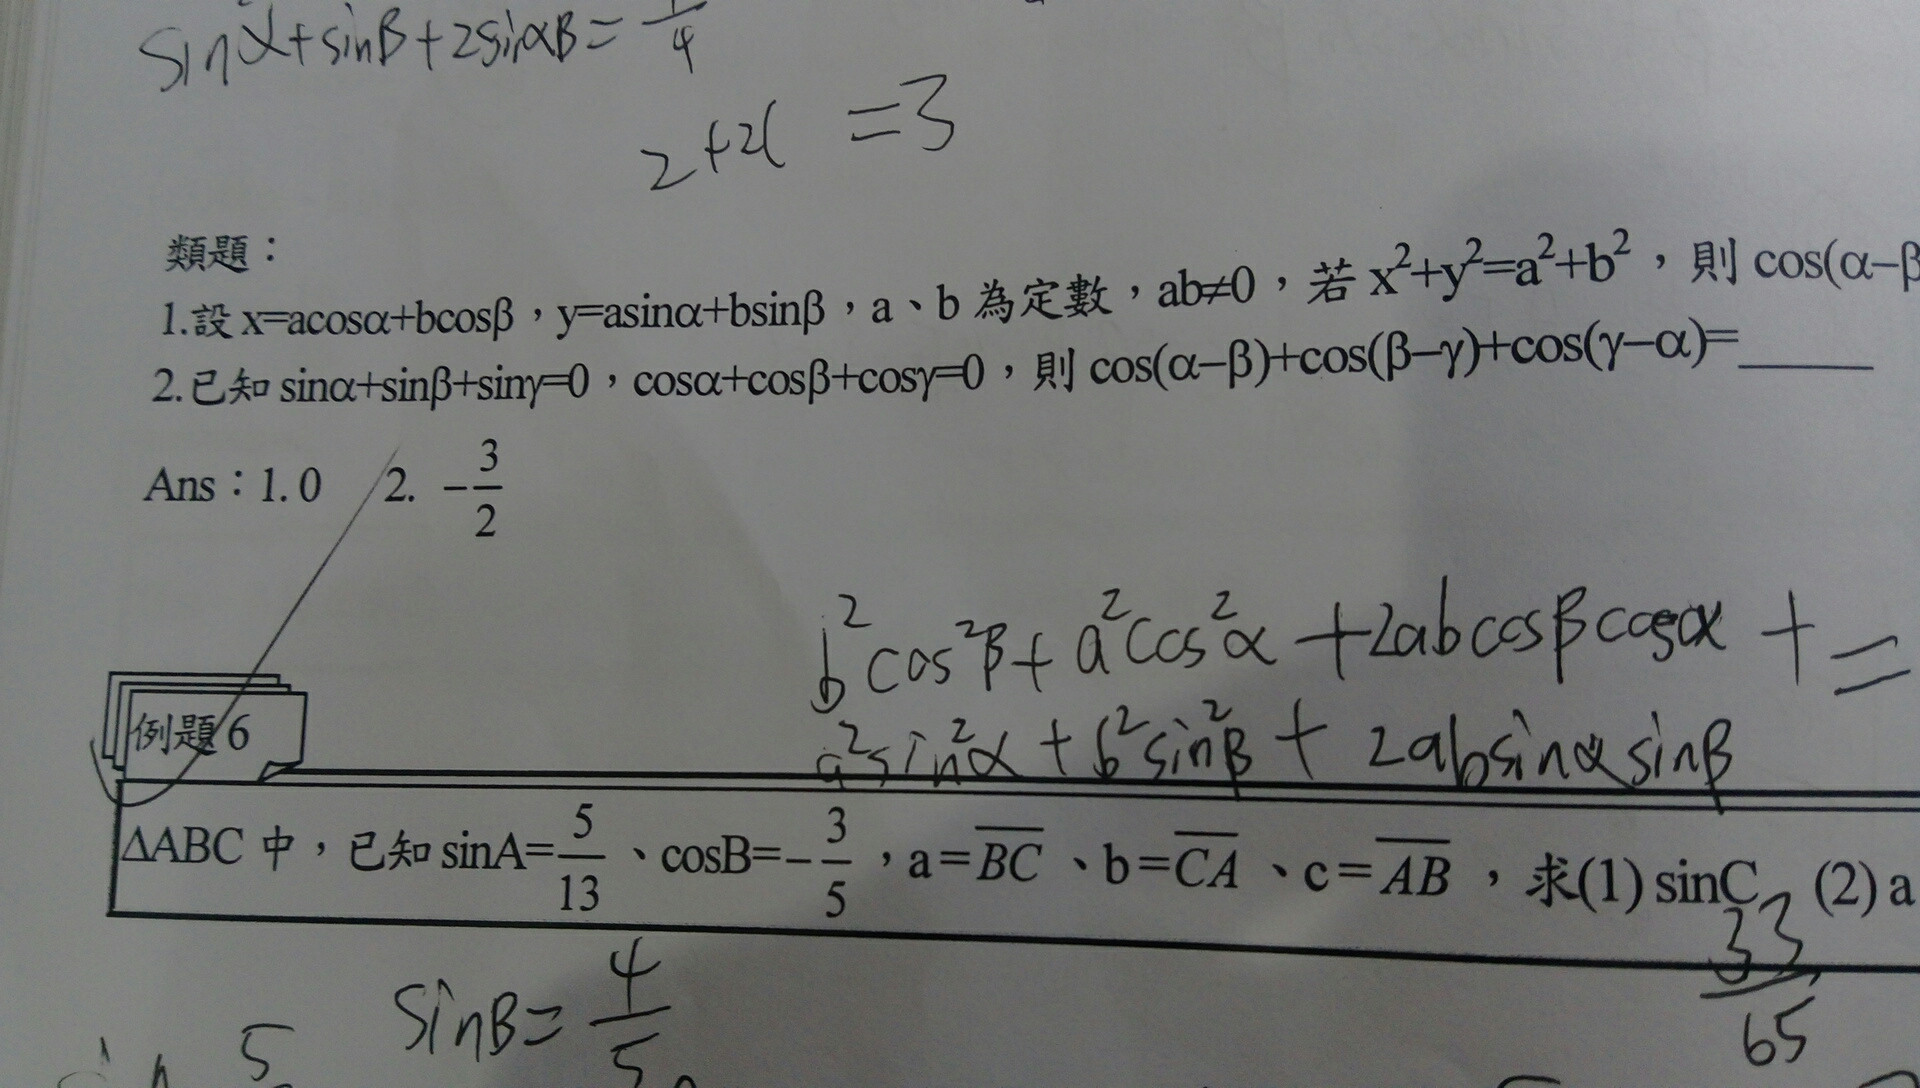 sinα+sinβ+2sinαβ=1/4
2+2( =3
類題：
1.設 x=acosα+bcosβ，y=asinα+bsinβ，a、b 為定數，ab≠0，若 x²+y²=a²+b²，則 cos(α−β
2.已知 sinα+sinβ+sinγ=0，cosα+cosβ+cosγ=0，則 cos(α−β)+cos(β−γ)+cos(γ−α)=______
Ans：1. 0 2. −3/2
b²cos²β+a²cos²α+2abcosβcosα + =
a²sin²α+b²sin²β+ 2absinαsinβ
例題 6
ΔABC 中，已知 sinA=5/13、cosB=−3/5，a=B̅C̅、b=C̅A̅、c=A̅B̅，求(1) sinC (2) a
33/65
sinB=4/5
5